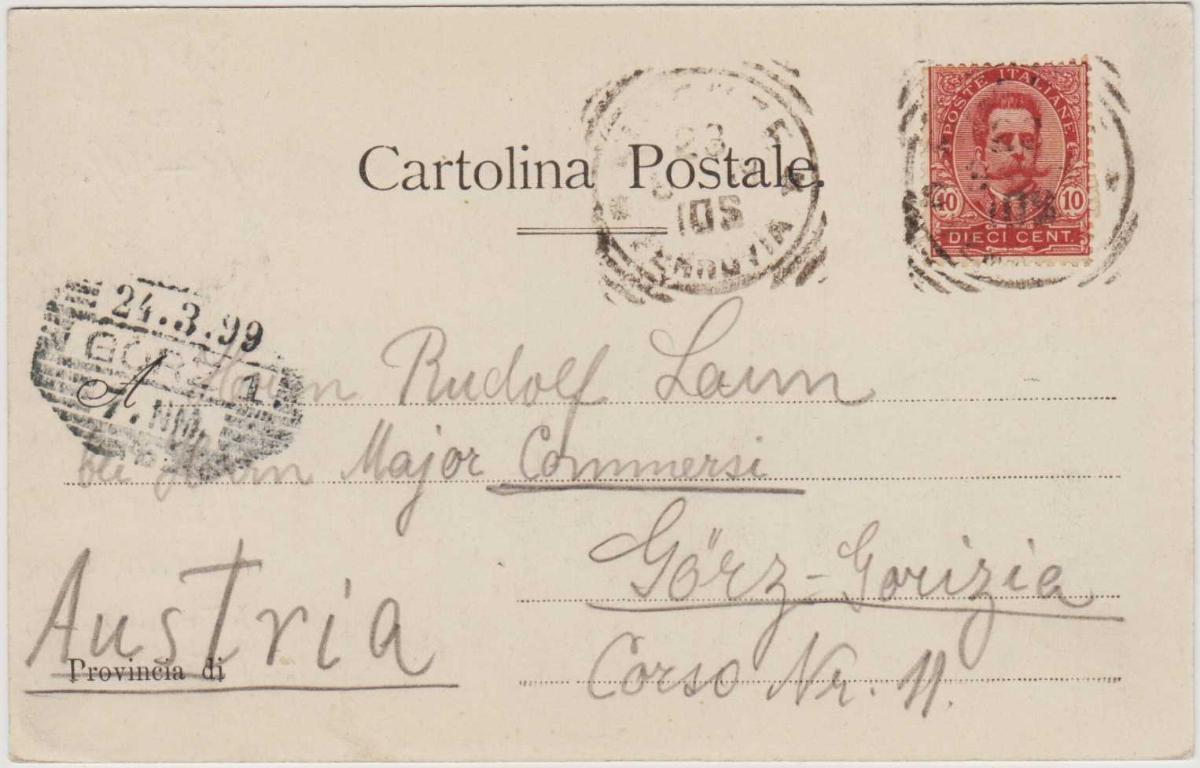 POSTE ITALIANE
10 10
DIECI CENT.
23
10S
FERROVIA
Cartolina Postale.
24.3.99
GÖRZ
1
A Herrn Rudolf Laun
bei Herrn Major Commersi
Görz-Gorizia
Austria
Provincia di
Corso Nr. 11